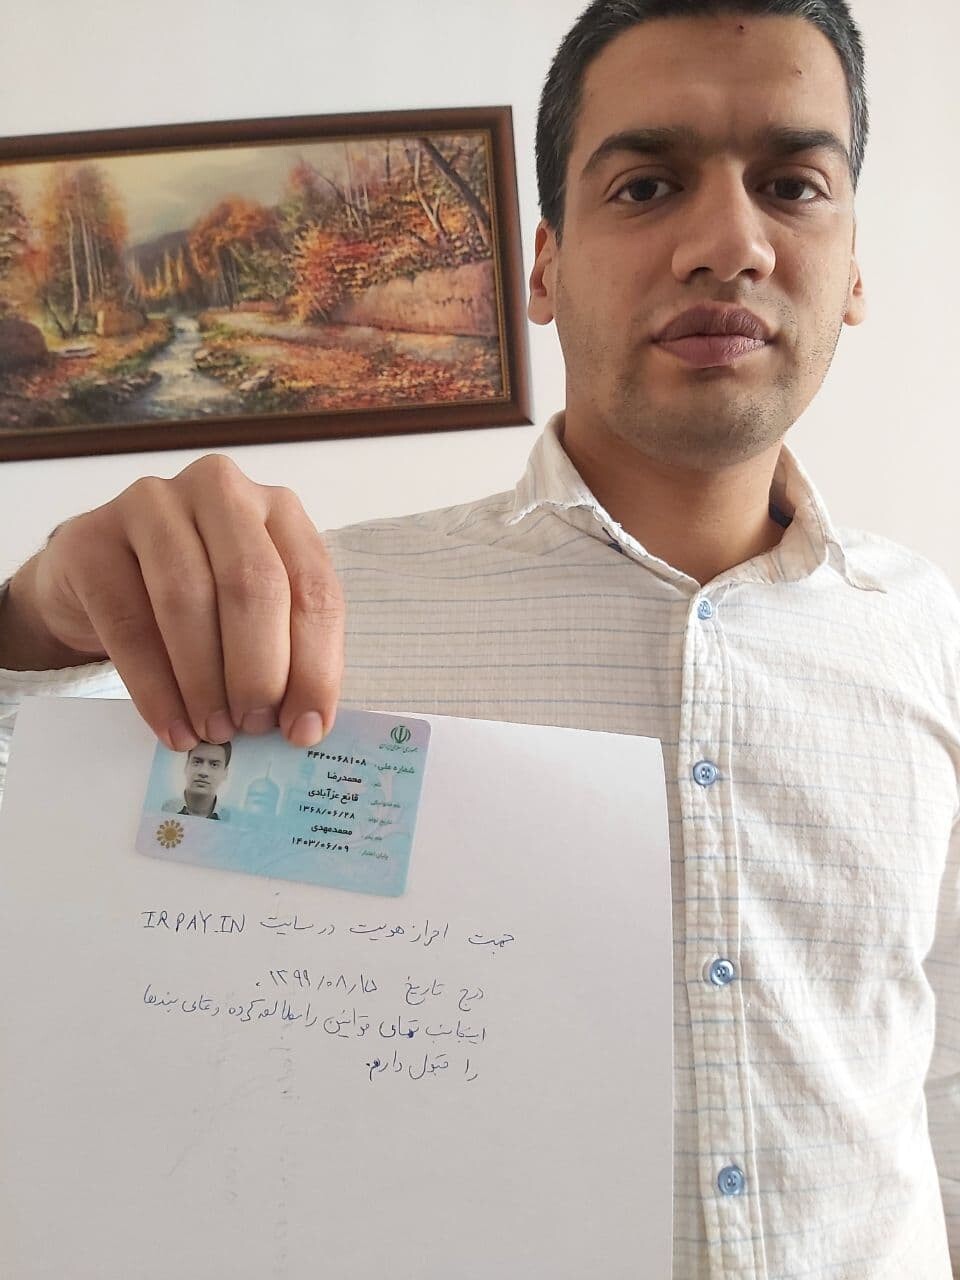 جمهوری اسلامی ایران
شماره ملی: ۴۴۲۰۰۶۸۱۰۸
نام: محمدرضا
نام خانوادگی: قانع عزآبادی
تاریخ تولد: ۱۳۶۸/۰۶/۲۸
نام پدر: محمدمهدی
پایان اعتبار: ۱۴۰۳/۰۶/۰۹
جهت احراز هویت در سایت IRPAY.IN
درج تاریخ ۱۳۹۹/۰۸/
اینجانب تمامی قوانین را مطالعه کرده و تمامی بندها
را قبول دارم.